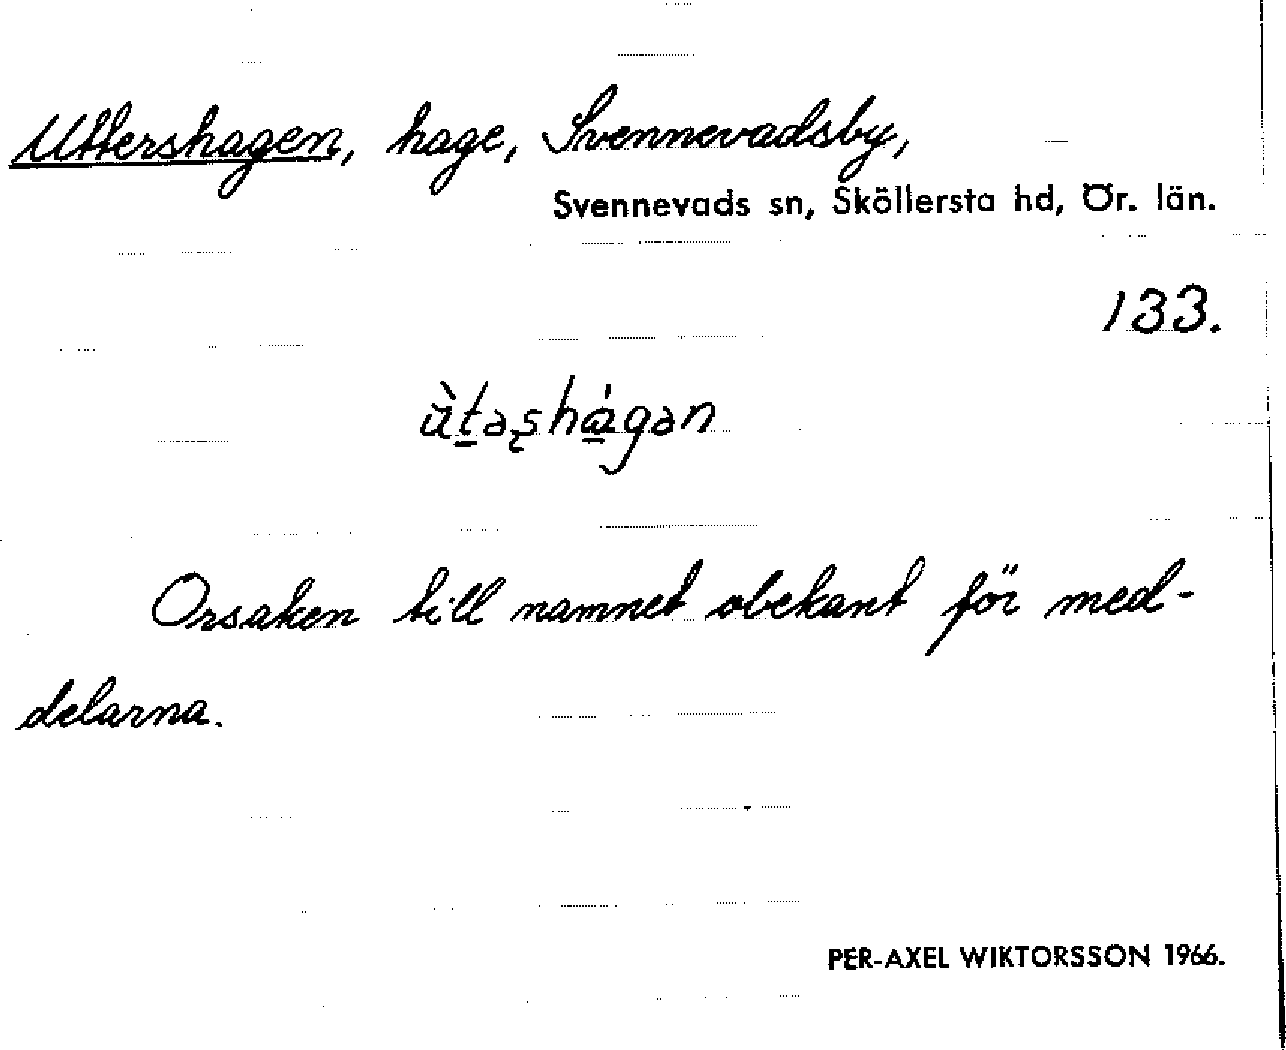 Uttershagen, hage, Svennevadsby,
Svennevads sn, Sköllersta hd, Ör. län.
133.
ùtəʂhágən
Orsaken till namnet obekant för med-
delarna.
PER-AXEL WIKTORSSON 1966.